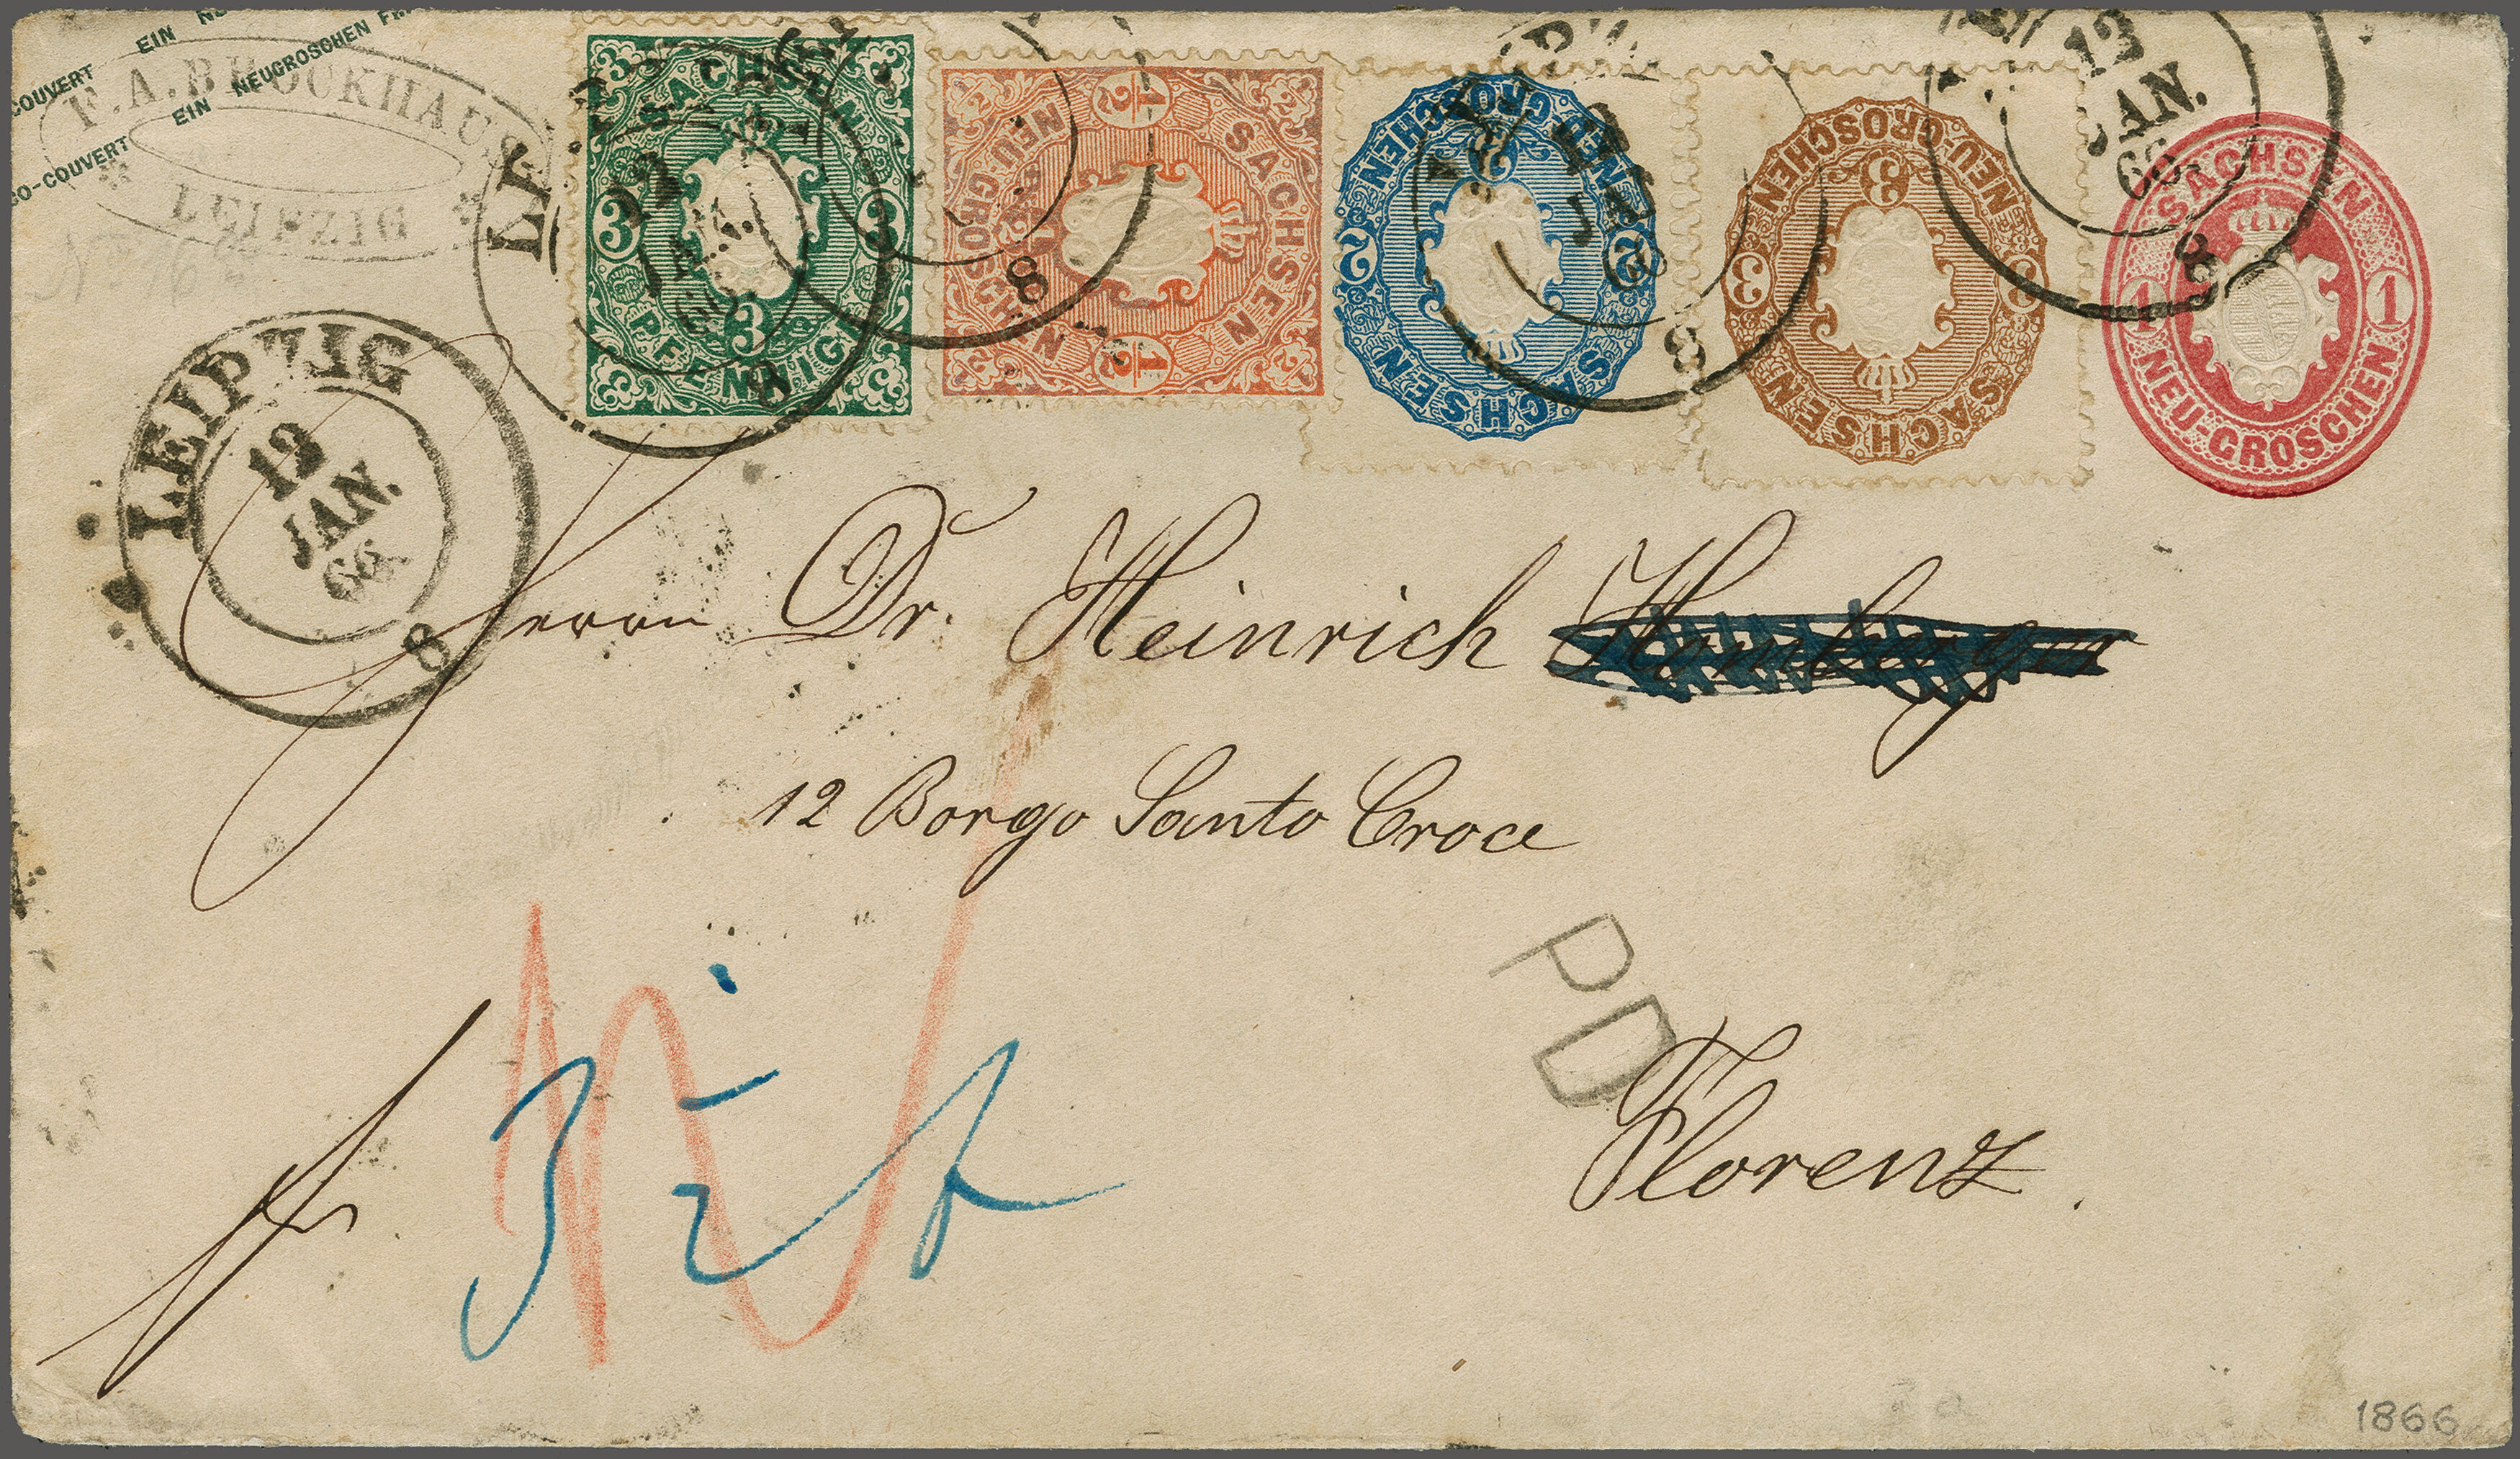 COUVERT EIN
GO-COUVERT EIN NEUGROSCHEN
F. A. BROCKHAUS
LEIPZIG
SACHSEN
3 3
3
PFENNIG
1/2 SACHSEN 1/2
NEU-GROSCHEN
2 NEU-GROSCHEN 2
SACHSEN
3 NEU-GROSCHEN 3
3
SACHSEN
SACHSEN
1 1
NEU-GROSCHEN
12
JAN.
66.
8
8
8
13
JAN.
66.
8
LEIPZIG
12
JAN.
66.
8
Herrn Dr. Heinrich Homberger
12 Borgo Santo Croce
PD
Florenz.
fr.
1866